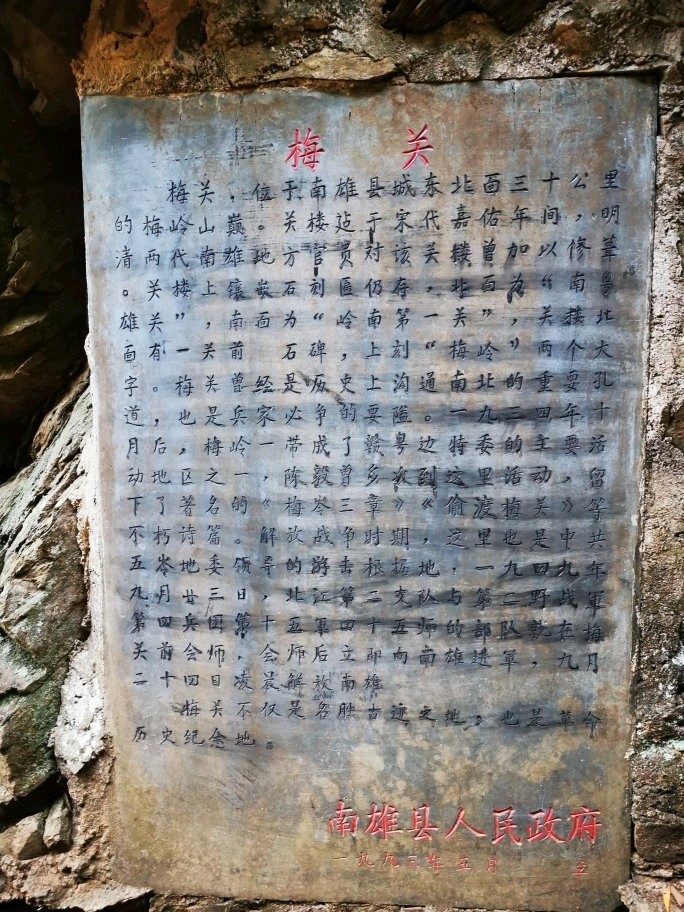 梅 关
梅关,位于南雄县城东北面三十公里
的梅岭山巅。关楼迠于宋代嘉佑年间,明
清两代南雄地方官员对该关楼曾加以修葺
。关楼上镶嵌石匾仍存,北面为“南粤
雄关”,南面刻“岭南第一关”,关楼北
面有一石碑,上刻“梅岭”两个大
字。梅关曾是历史上沟通南北的重要孔
道,也是兵家必争的要隘。一九三四年十
月后,梅岭一带成了赣粤边特委的主要活
动地区之一。陈毅曾到这里活动,留
下了著名的《梅岭三章》,《偷渡梅关》等
不朽诗篇。解放战争时期,这里也是中共
五岑地委的游击根据地,一九四九年
九月廿三日,北江第二支队与第四野战军
第四兵团十五军四十五师的部队,在梅
关前会师。会师后立即向南雄进军,九月
二十四日凌晨解放南雄
梅关不仅是名胜古迹之地。也是革命
历史纪念地。
南雄县人民政府
一九九三年五月 立